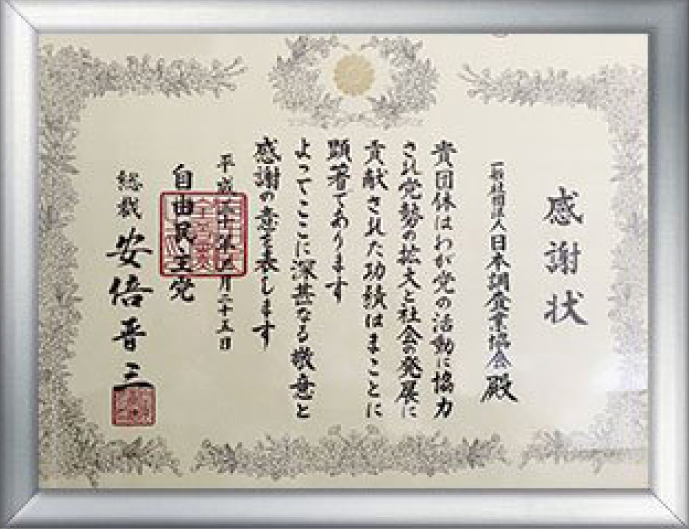 感謝状
一般社団法人日本調査業協会殿
貴団体はわが党の活動に協力
され党勢の拡大と社会の発展に
貢献された功績はまことに
顕著であります
よってここに深甚なる敬意と
感謝の意を表します
平成三十年 月二十五日
自由民主党
総裁 安倍晋三